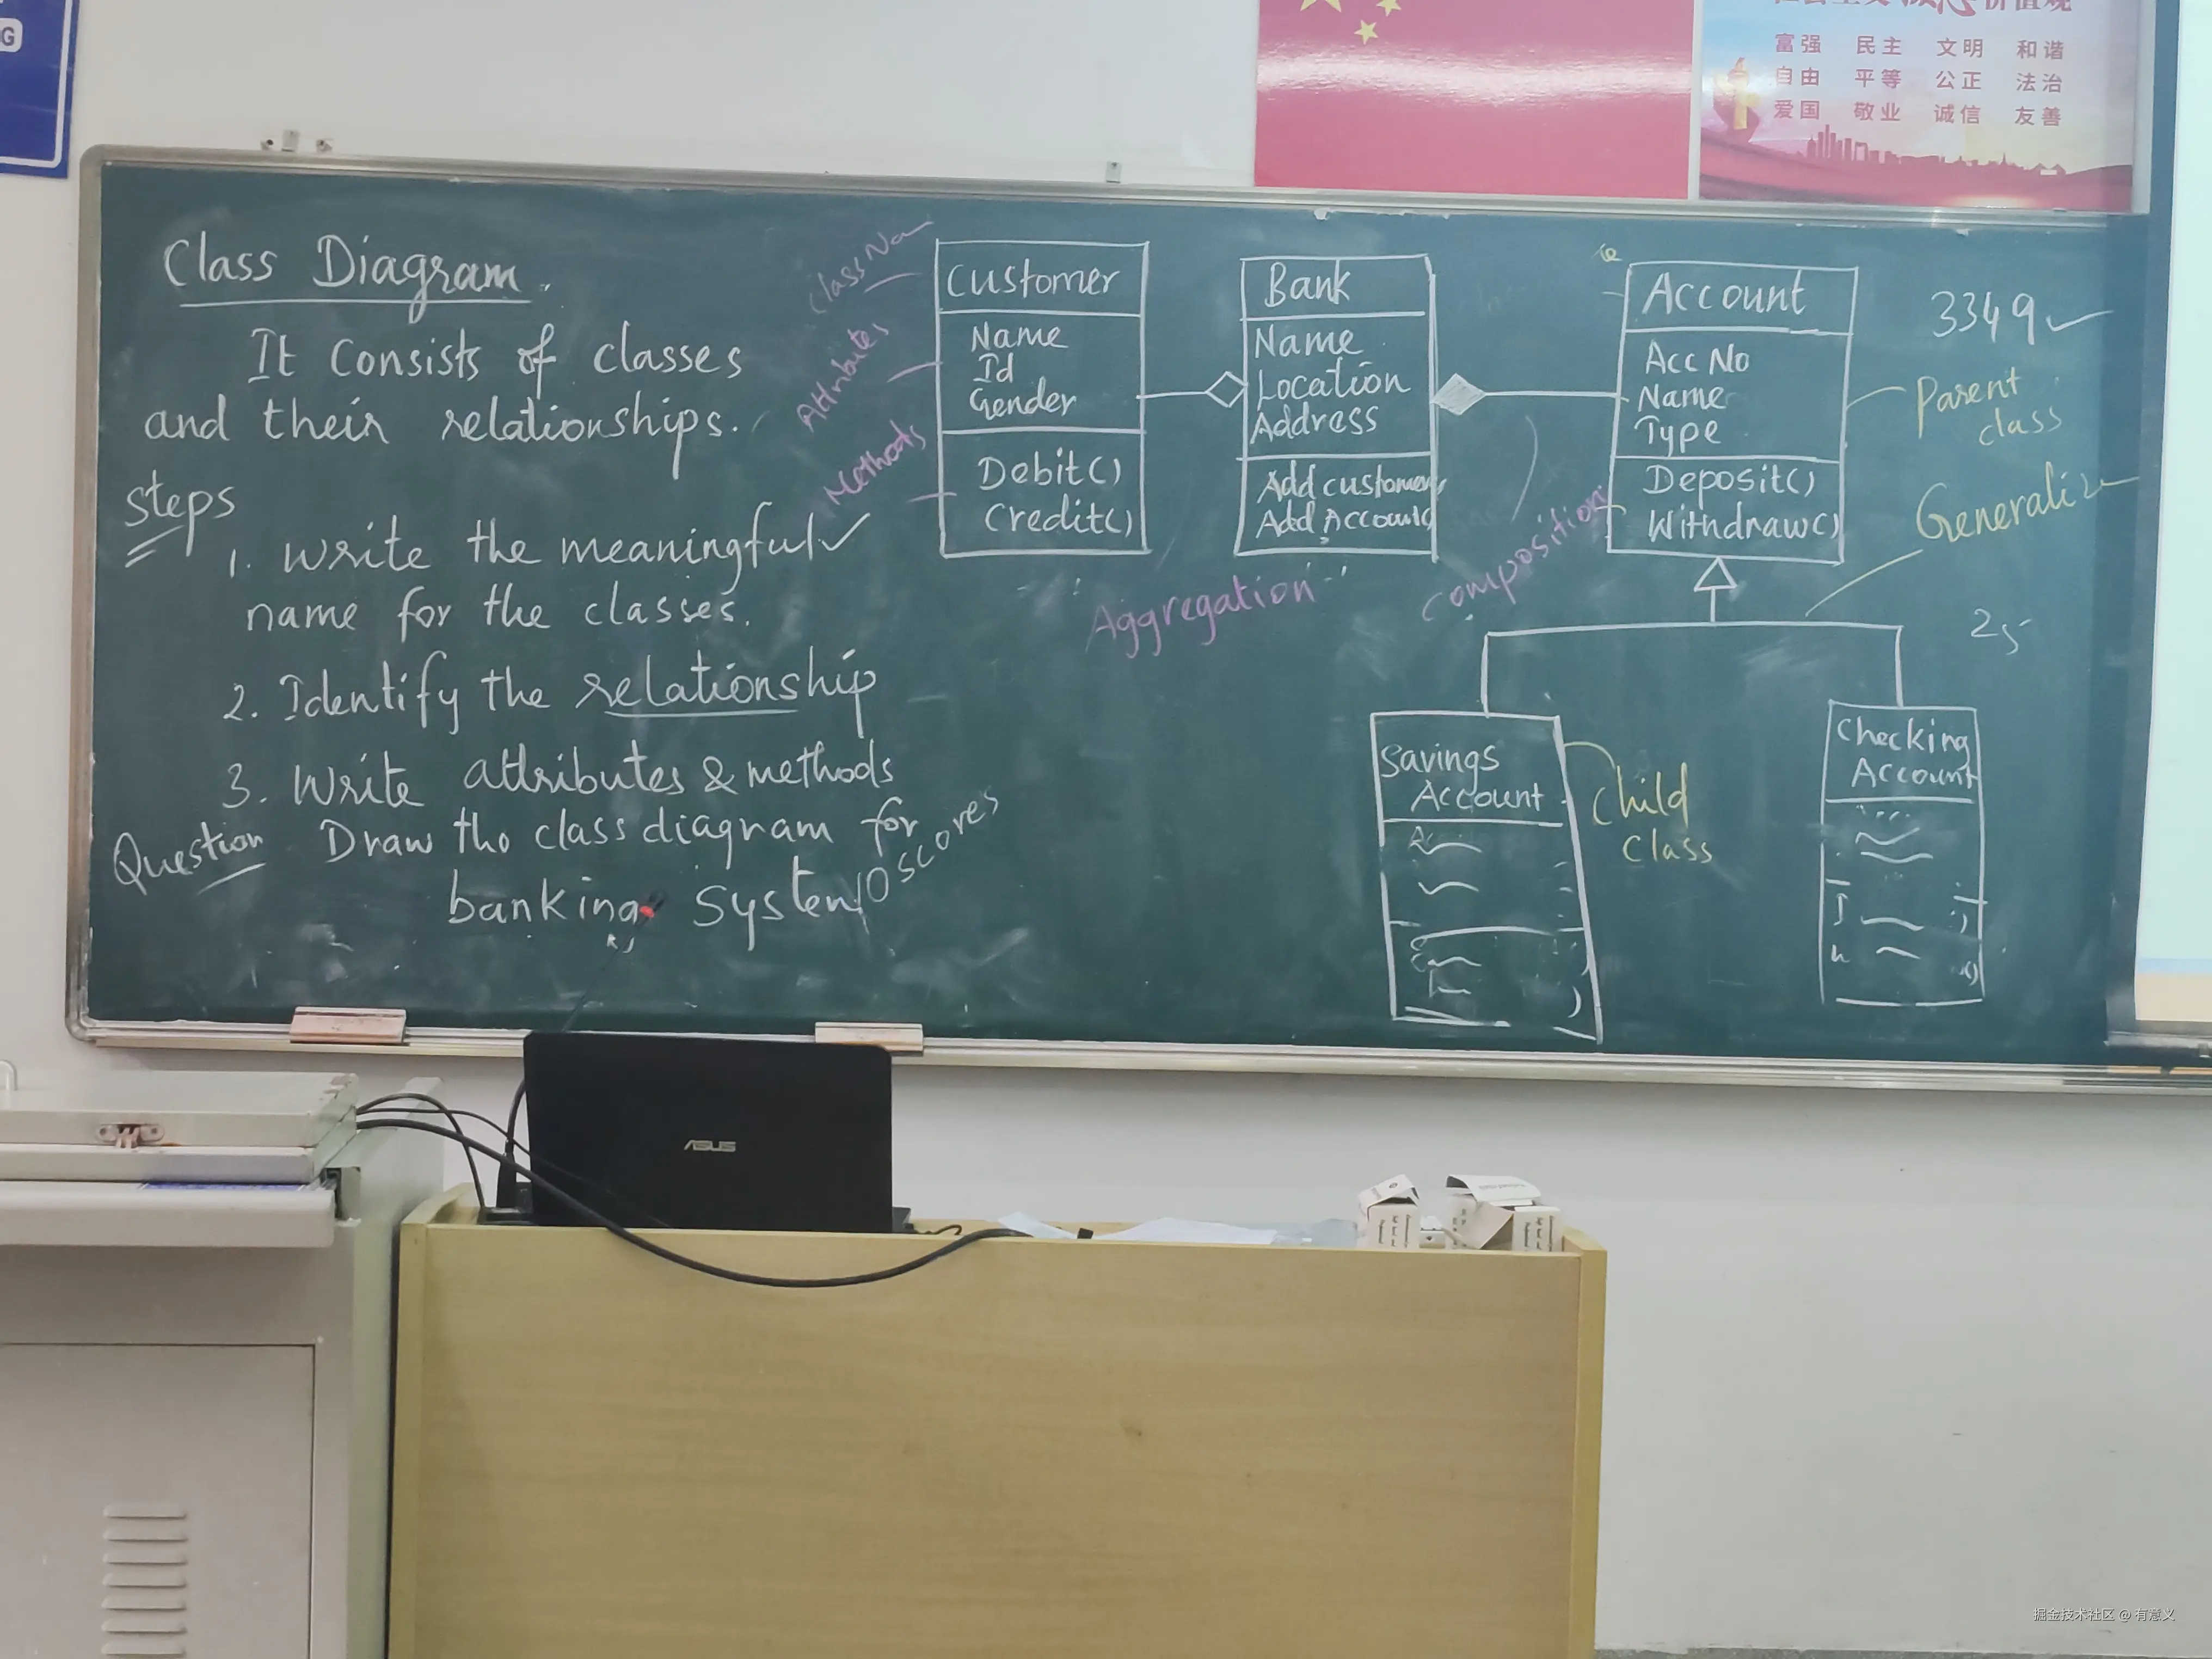 G
富强 民主 文明 和谐
自由 平等 公正 法治
爱国 敬业 诚信 友善
Class Diagram.
It consists of classes
and their relationships.
Steps
1. Write the meaningful
name for the classes.
2. Identify the relationship
3. Write attributes & methods
Question Draw the class diagram for
banking System 10 scores
Class Na
Attributes
Methods
Customer
Name
Id
Gender
Debit()
Credit()
Aggregation
Bank
Name
Location
Address
Add customer
Add Account
composition
Account
Acc No
Name
Type
Deposit()
Withdraw()
3349
Parent
class
Generaliz
25
Savings
Account
Child
Class
Checking
Account
ASUS
掘金技术社区 @ 有意义